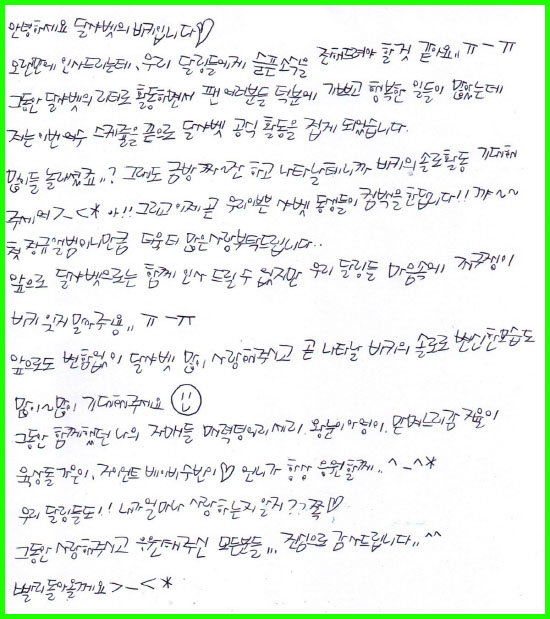 안녕하세요 달샤벳의 비키입니다♡
오랜만에 인사드리는데, 우리 달링들에게 슬픈소식을 전해드려야 할 것 같아요,, ㅠ-ㅠ
그동안 달샤벳의 리더로 활동하면서 팬 여러분들 덕분에 기쁘고 행복한 일들이 많았는데
저는 이번 여수 스케줄을 끝으로 달샤벳 공식 활동을 접게 되었습니다.
많이들 놀래셨죠,,? 그래도 금방 짜~잔 하고 나타날테니까 비키의 솔로활동 기대해
주세여>_<* 아!! 그리고 이제 곧 우리이쁜 샤벳 동생들이 컴백을 한답니다!! 꺄~~
첫 정규앨범이니만큼 더욱더 많은사랑부탁드립니다..
앞으로 달샤벳으로는 함께 인사 드릴 수 없지만 우리 달링들 마음속에
비키 잊지 말아주용,, ㅠ-ㅠ
앞으로도 변함없이 달샤벳 많이 사랑해주시고 곧 나타날 비키의 솔로로 변신한모습도
많이~많이 기대해주세요 ☺
그동안 함께했던 나의 자매들 매력덩어리세리. 왕눈이아영이. 지율이
육상돌가은이, 자이언트 베이비수빈이♡ 언니가 항상 응원할께,, ^-^*
우리 달링들도!! 내가얼마나 사랑하는지 알지??쪽♡
그동안 사랑해주시고 응원해주신 모든분들,,, 진심으로 감사드립니다,, ^^
빨리돌아올께요>_<*